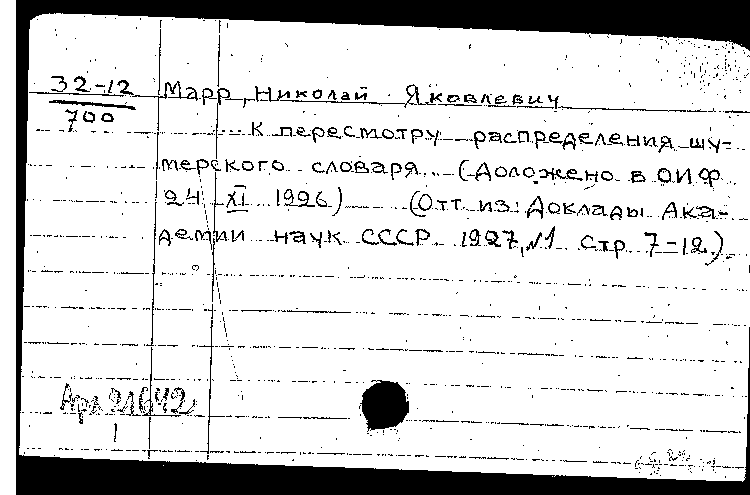 32-12
700
Марр, Николай Яковлевич
К пересмотру распределения шу=
мерского словаря. (Доложено в ОИФ
24 XI 1926) (Отт из: Доклады Ака-
демии наук СССР 1927, №1 стр 7-12.).
Арх 21642
1